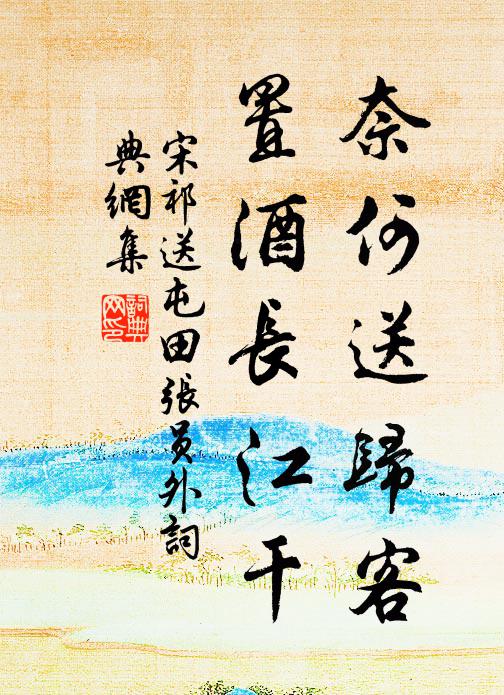 奈何送歸客
置酒長江干
宋祁送屯田張員外詞
典網集
詞典網印